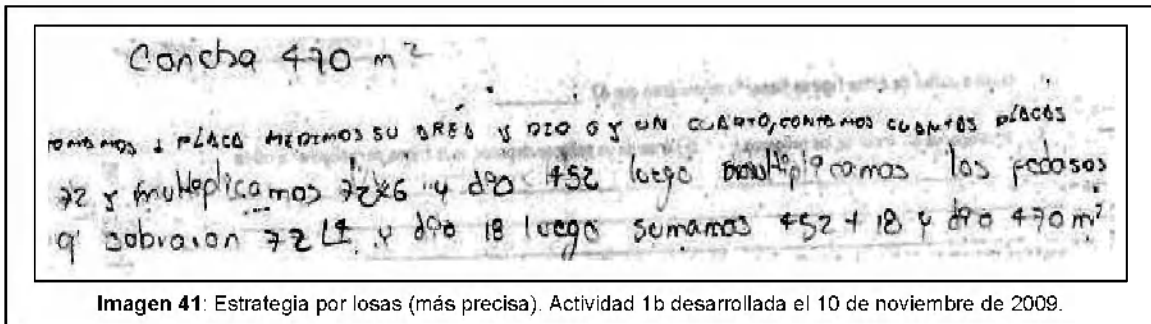 Concha 470 m²
TOMAMOS 1 PLACA MEDIMOS SU AREA Y DIO 6 Y UN CUARTO, CONTAMOS CUANTAS PLACAS
72 y multeplicamos 72x6 y dio 452 luego multiplicamos los pedasos
q' sobraron 72 y dio 18 luego sumamos 452 + 18 y dio 470 m²
Imagen 41: Estrategia por losas (más precisa). Actividad 1b desarrollada el 10 de noviembre de 2009.